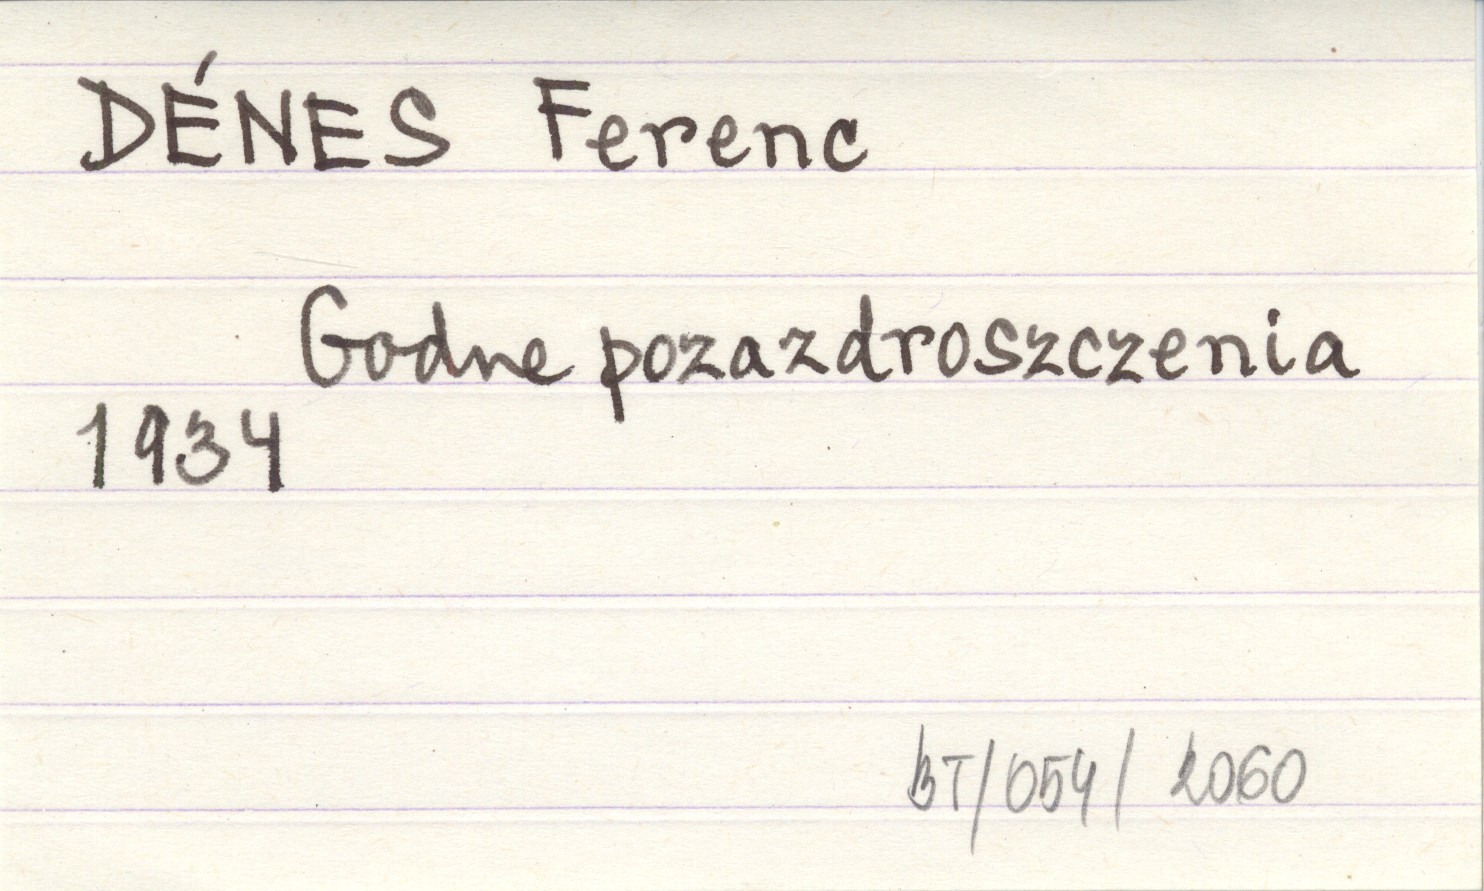 DÉNES Ferenc
Godne pozazdroszczenia
1934
BT/054/2060